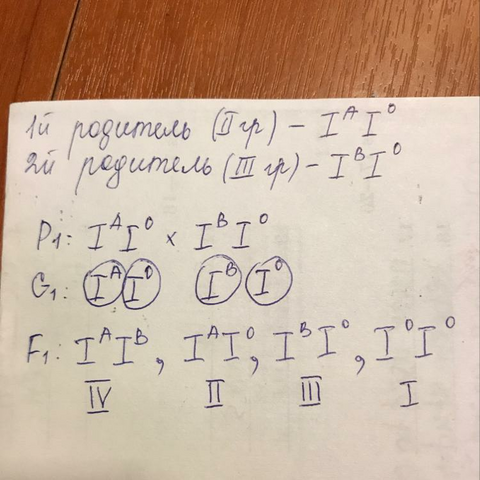 1й родитель (II гр) – IᴬI⁰
2й родитель (III гр) – IᴮI⁰
P₁: IᴬI⁰ × IᴮI⁰
G₁: Iᴬ I⁰ Iᴮ I⁰
F₁: IᴬIᴮ, IᴬI⁰, IᴮI⁰, I⁰I⁰
IV II III I